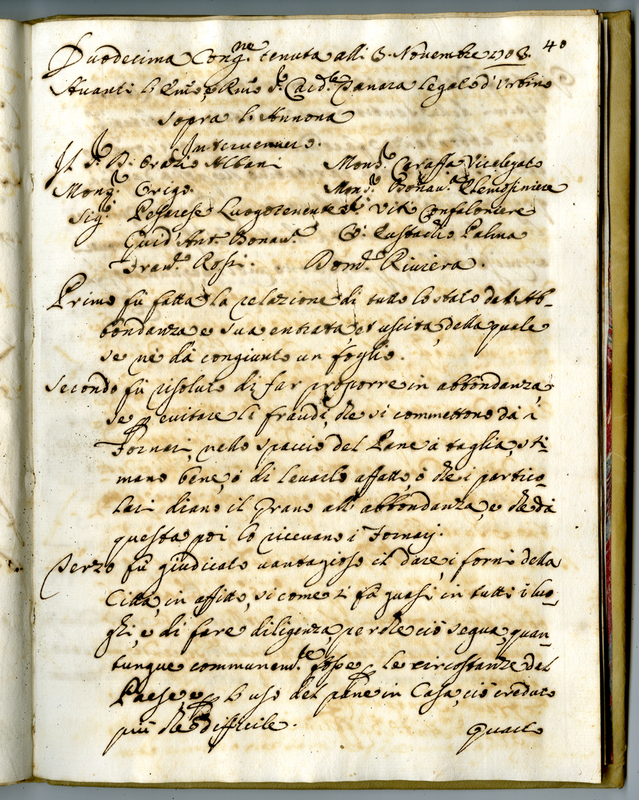 40
Duodecima Congne. tenuta alli 3. Novembre 1703.
Avanti l'Emo, e Rmo Sr. Cardle. Tanara Legato d'Urbino
sopra l'Annona
Intervenuero.
Il Sr. D. Orazio Albani Monsr. Caraffa Vicelegato
Monsr. Origo. Monsr. Bonav.a Elemosiniere
Sigr. Pesarese Luogotenente Viti Confaloniere
Guid' Ant. Bonav.a Eustachio Palma
Fran.o Rossi. Dom.o Riviera.
Primo fù fatta la relazione di tutto lo stato dell'Ab-
bondanza e sua entrata, et uscita, della quale
se ne dà congiunto un foglio.
Secondo fù risoluto di far proporre in abbondanza,
se p evitare le fraudi, che si commettono dà i
Fornari, nello spaccio del Pane à taglia, sti-
mano bene, ò di levarlo affatto, ò che i partico-
lari diano il Grano all'abbondanza, e che dà
questa poi lo ricevano i Fornarj.
Terzo fù giudicato vantagioso il dare, i forni della
Città, in affitto, si come si fà quasi in tutti i luo-
ghi, e di fare diligenza, perche ciò segua, quan-
tunque communemte. le circostanze del
Paese e l'uso del pane in Casa, ciò creduto
più che difficile.
Quarto